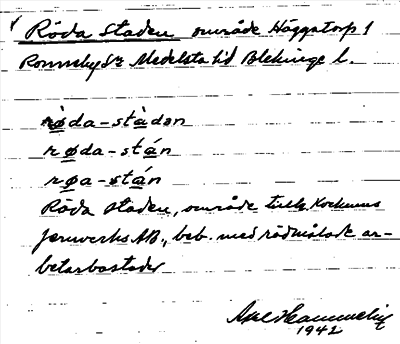 Röda staden område Häggatorp 1
Ronneby Sn Medelsta hd Blekinge l.
røda-stàden
røda-stán
røa-stán
Röda staden, område tillh. Kockums
Jernverks AB., beb. med rödmålade ar-
betarbostäder
1942